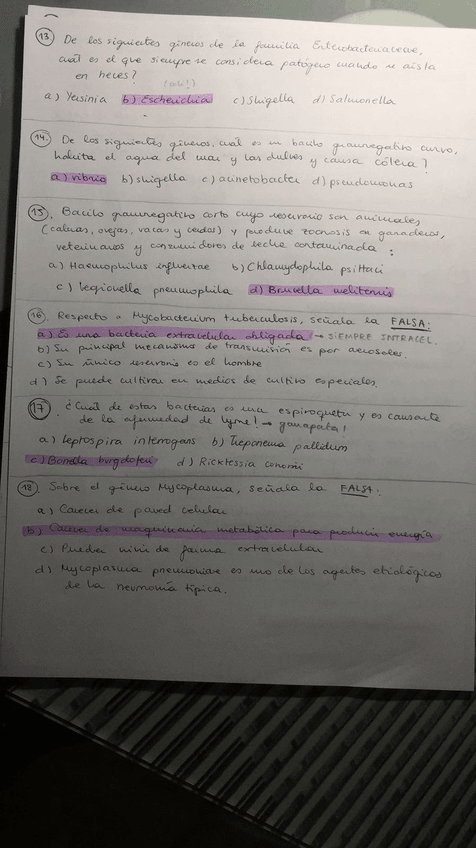 13. De los siguientes géneros de la familia Enterobacteriaceae,
cuál es el que siempre se considera patógeno cuando se aísla
en heces?
a) Yersinia b) Escherichia c) Shigella d) Salmonella
14. De los siguientes géneros, cuál es un bacilo gramnegativo curvo,
habita el agua del mar y las dulces y causa cólera?
a) vibrio b) shigella c) acinetobacter d) pseudomonas
15. Bacilo gramnegativo corto cuyo reservorio son animales
(cabras, ovejas, vacas y cerdos) y produce zoonosis en ganaderos,
veterinarios y consumidores de leche contaminada:
a) Haemophilus influenzae b) Chlamydophila psittaci
c) Legionella pneumophila d) Brucella melitensis
16. Respecto a Mycobacterium tuberculosis, señala la FALSA:
a) Es una bacteria extracelular obligada → SIEMPRE INTRACEL.
b) Su principal mecanismo de transmisión es por aerosoles.
c) Su único reservorio es el hombre
d) Se puede cultivar en medios de cultivo especiales.
17. ¿Cuál de estas bacterias es una espiroqueta y es causante
de la enfermedad de Lyme! → garrapata!
a) Leptospira interrogans b) Treponema pallidum
c) Borrelia burgdoferi d) Ricktessia conorii
18. Sobre el género Mycoplasma, señala la FALSA:
a) Carecer de pared celular
b) Carecer de maquinaria metabólica para producir energía
c) Pueden vivir de forma extracelular
d) Mycoplasma pneumoniae es uno de los agentes etiológicos
de la neumonía típica.